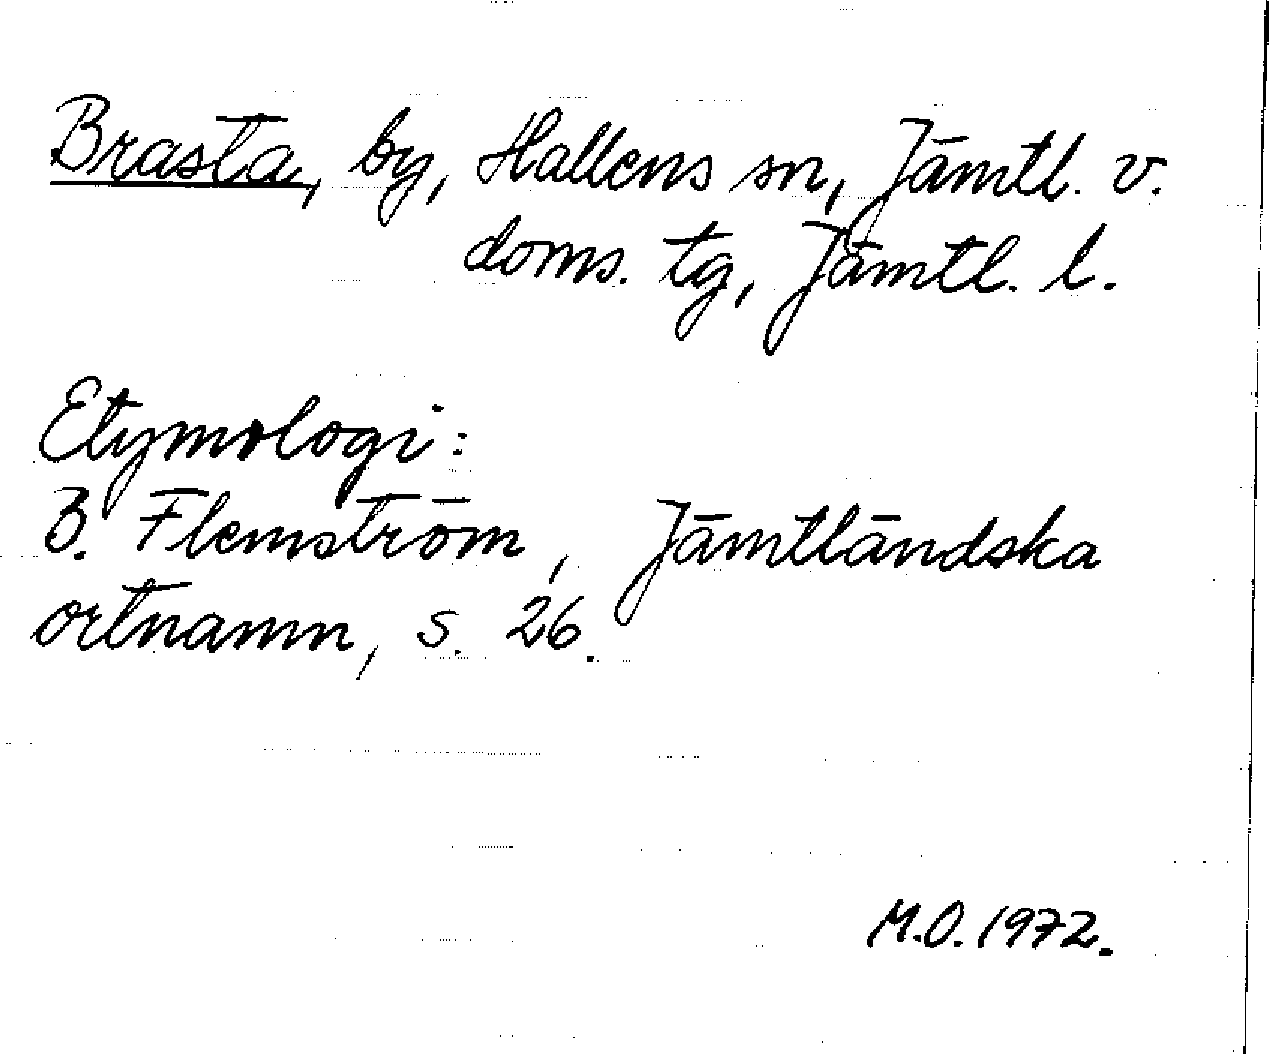 Brasta, by, Hallens sn, Jämtl. v.
doms. tg, Jämtl. l.
Etymologi:
B. Flemström, Jämtländska
ortnamn, s. 26.
M.O. 1972.